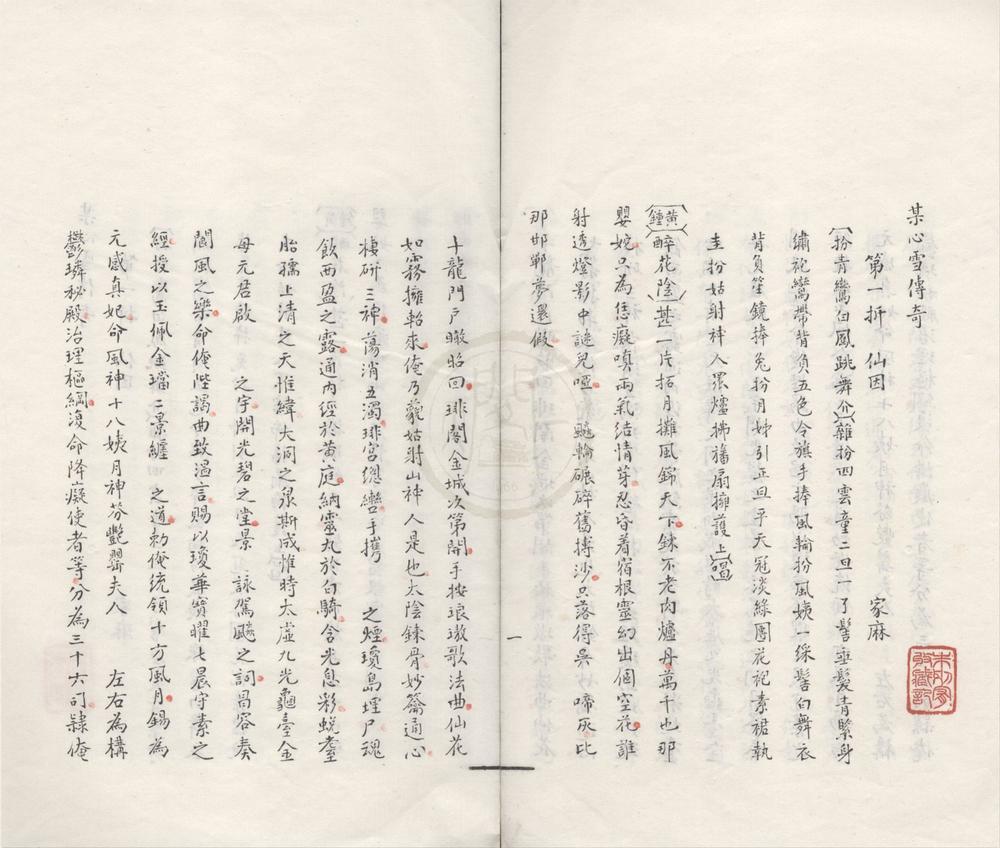 某心雪傳奇
第一折 仙因 家麻
扮青鸞白鳳跳舞介雜扮四雲童二旦一了髻垂髮青緊身
繡袍鸞帶背負五色令旗手捧風輪扮風姨一綵髻白舞衣
背負笙鏡捧兔扮月姊引正旦平天冠淡綠團花袍素裙執
圭扮姑射神人眾爐拂旛扇擁護上唱
黃鍾醉花陰甚一片拓月攤風錦天下銇不老肉爐丹萬千也那
嬰妮只為恁癡嗔兩氣結情芽忍昏着宿根靈幻出個空花誰
射透燈影中謎兒啞颷輪碾碎舊摶沙只落得吳 啼灰比
那邯鄲夢還假
一
十龍門戶瞰昭回琲閣金城次第開手按琅璈歌法曲仙花
如霧擁軿來俺乃藐姑射山神人是也太陰鍊骨妙籥通心
棲研三神蕩消五濁琲宮縂轡手攜 之煙瓊島埋尸魂
飲西盈之露通內經於黃庭納靈丸於白騎含光息彩蛻耋
胎孺上清之天惟緯大洞之录斯成惟時太虛九光龜臺金
母元君啟 之宇開光碧之堂景 詠駕飈之詞昌容奏
閬風之樂命俺陛謁曲致溫言賜以瓊華寶曜七晨守素之
經授以玉佩金璫二景纏 之道勑俺統領十方風月錫為
元感真妃命風神十八姨月神芬艷翳夫人 左右為構
鬱璘秘殿治理樞綱復命降癡使者等分為三十六司隸俺